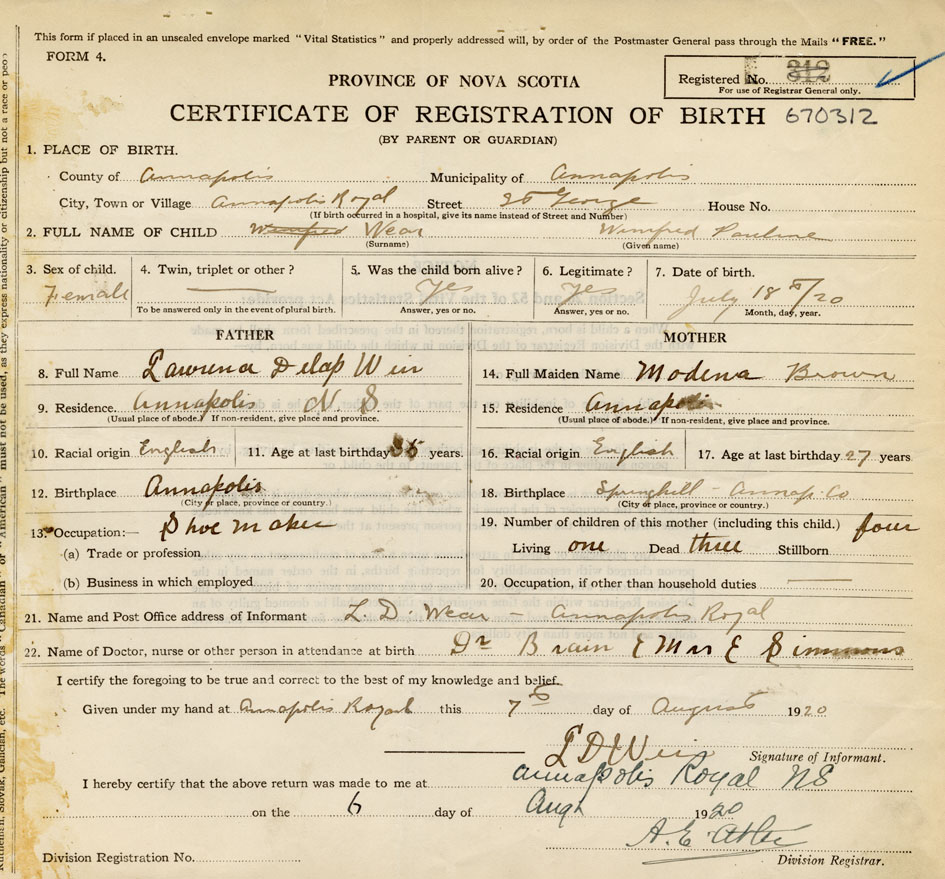 This form if placed in an unsealed envelope marked "Vital Statistics" and properly addressed will, by order of the Postmaster General pass through the Mails "FREE."
FORM 4.
PROVINCE OF NOVA SCOTIA
Registered No. 312
For use of Registrar General only.
CERTIFICATE OF REGISTRATION OF BIRTH 670312
(BY PARENT OR GUARDIAN)
1. PLACE OF BIRTH.
County of Annapolis Municipality of Annapolis
City, Town or Village Annapolis Royal Street St George House No.
(If birth occurred in a hospital, give its name instead of Street and Number)
2. FULL NAME OF CHILD Winifred Wear Winifred Pauline
(Surname) (Given name)
3. Sex of child. 4. Twin, triplet or other? 5. Was the child born alive? 6. Legitimate? 7. Date of birth.
Female Yes Yes July 18th/20
To be answered only in the event of plural birth. Answer, yes or no. Answer, yes or no. Month, day, year.
FATHER MOTHER
8. Full Name Lawrence Delap Weir 14. Full Maiden Name Modena Brown
9. Residence. Annapolis N. S 15. Residence Annapolis
(Usual place of abode.) If non-resident, give place and province. (Usual place of abode.) If non-resident, give place and province.
10. Racial origin English 11. Age at last birthday years. 16. Racial origin English 17. Age at last birthday 27 years
12. Birthplace Annapolis 18. Birthplace Springhill - Annap. Co
(City or place, province or country.) (City or place, province or country.)
13. Occupation:— Shoe maker 19. Number of children of this mother (including this child.) four
(a) Trade or profession Living one Dead three Stillborn
(b) Business in which employed 20. Occupation, if other than household duties
21. Name and Post Office address of Informant L. D. Wear - Annapolis Royal
22. Name of Doctor, nurse or other person in attendance at birth Dr Braim & Mrs E Simmons
I certify the foregoing to be true and correct to the best of my knowledge and belief.
Given under my hand at Annapolis Royal this 7th day of August 1920
L D Weir Signature of Informant.
I hereby certify that the above return was made to me at Annapolis Royal NS
on the 6 day of Augt 1920
A. E.
Division Registration No. Division Registrar.